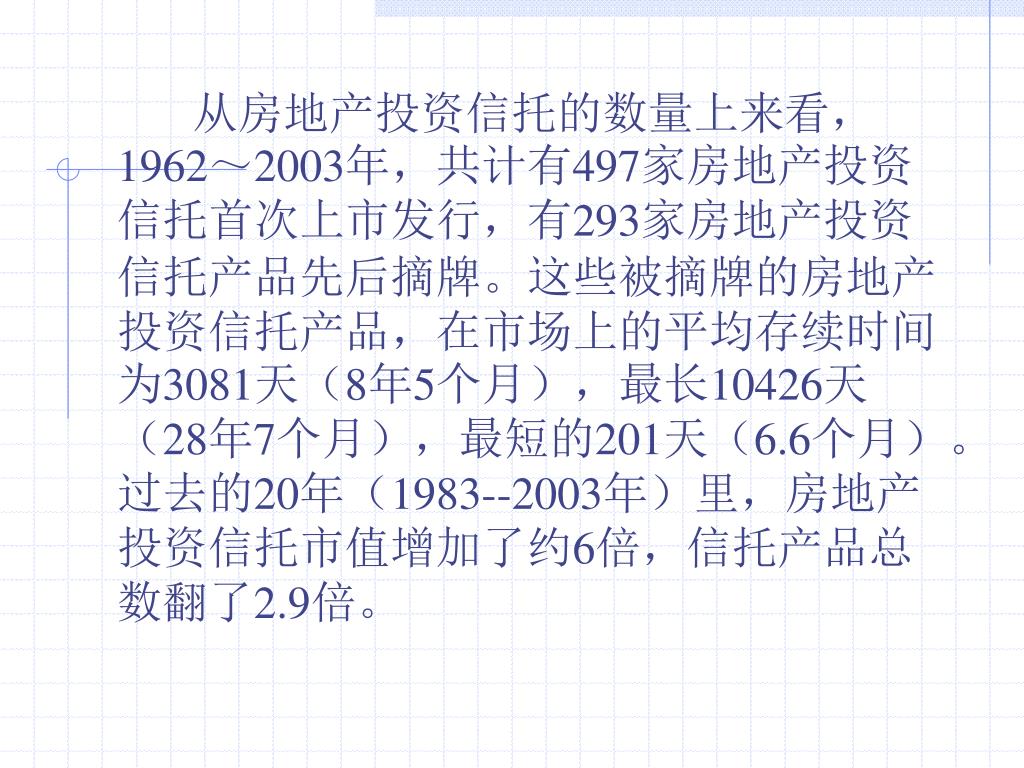 从房地产投资信托的数量上来看，
1962～2003年，共计有497家房地产投资
信托首次上市发行，有293家房地产投资
信托产品先后摘牌。这些被摘牌的房地产
投资信托产品，在市场上的平均存续时间
为3081天（8年5个月），最长10426天
（28年7个月），最短的201天（6.6个月）。
过去的20年（1983--2003年）里，房地产
投资信托市值增加了约6倍，信托产品总
数翻了2.9倍。